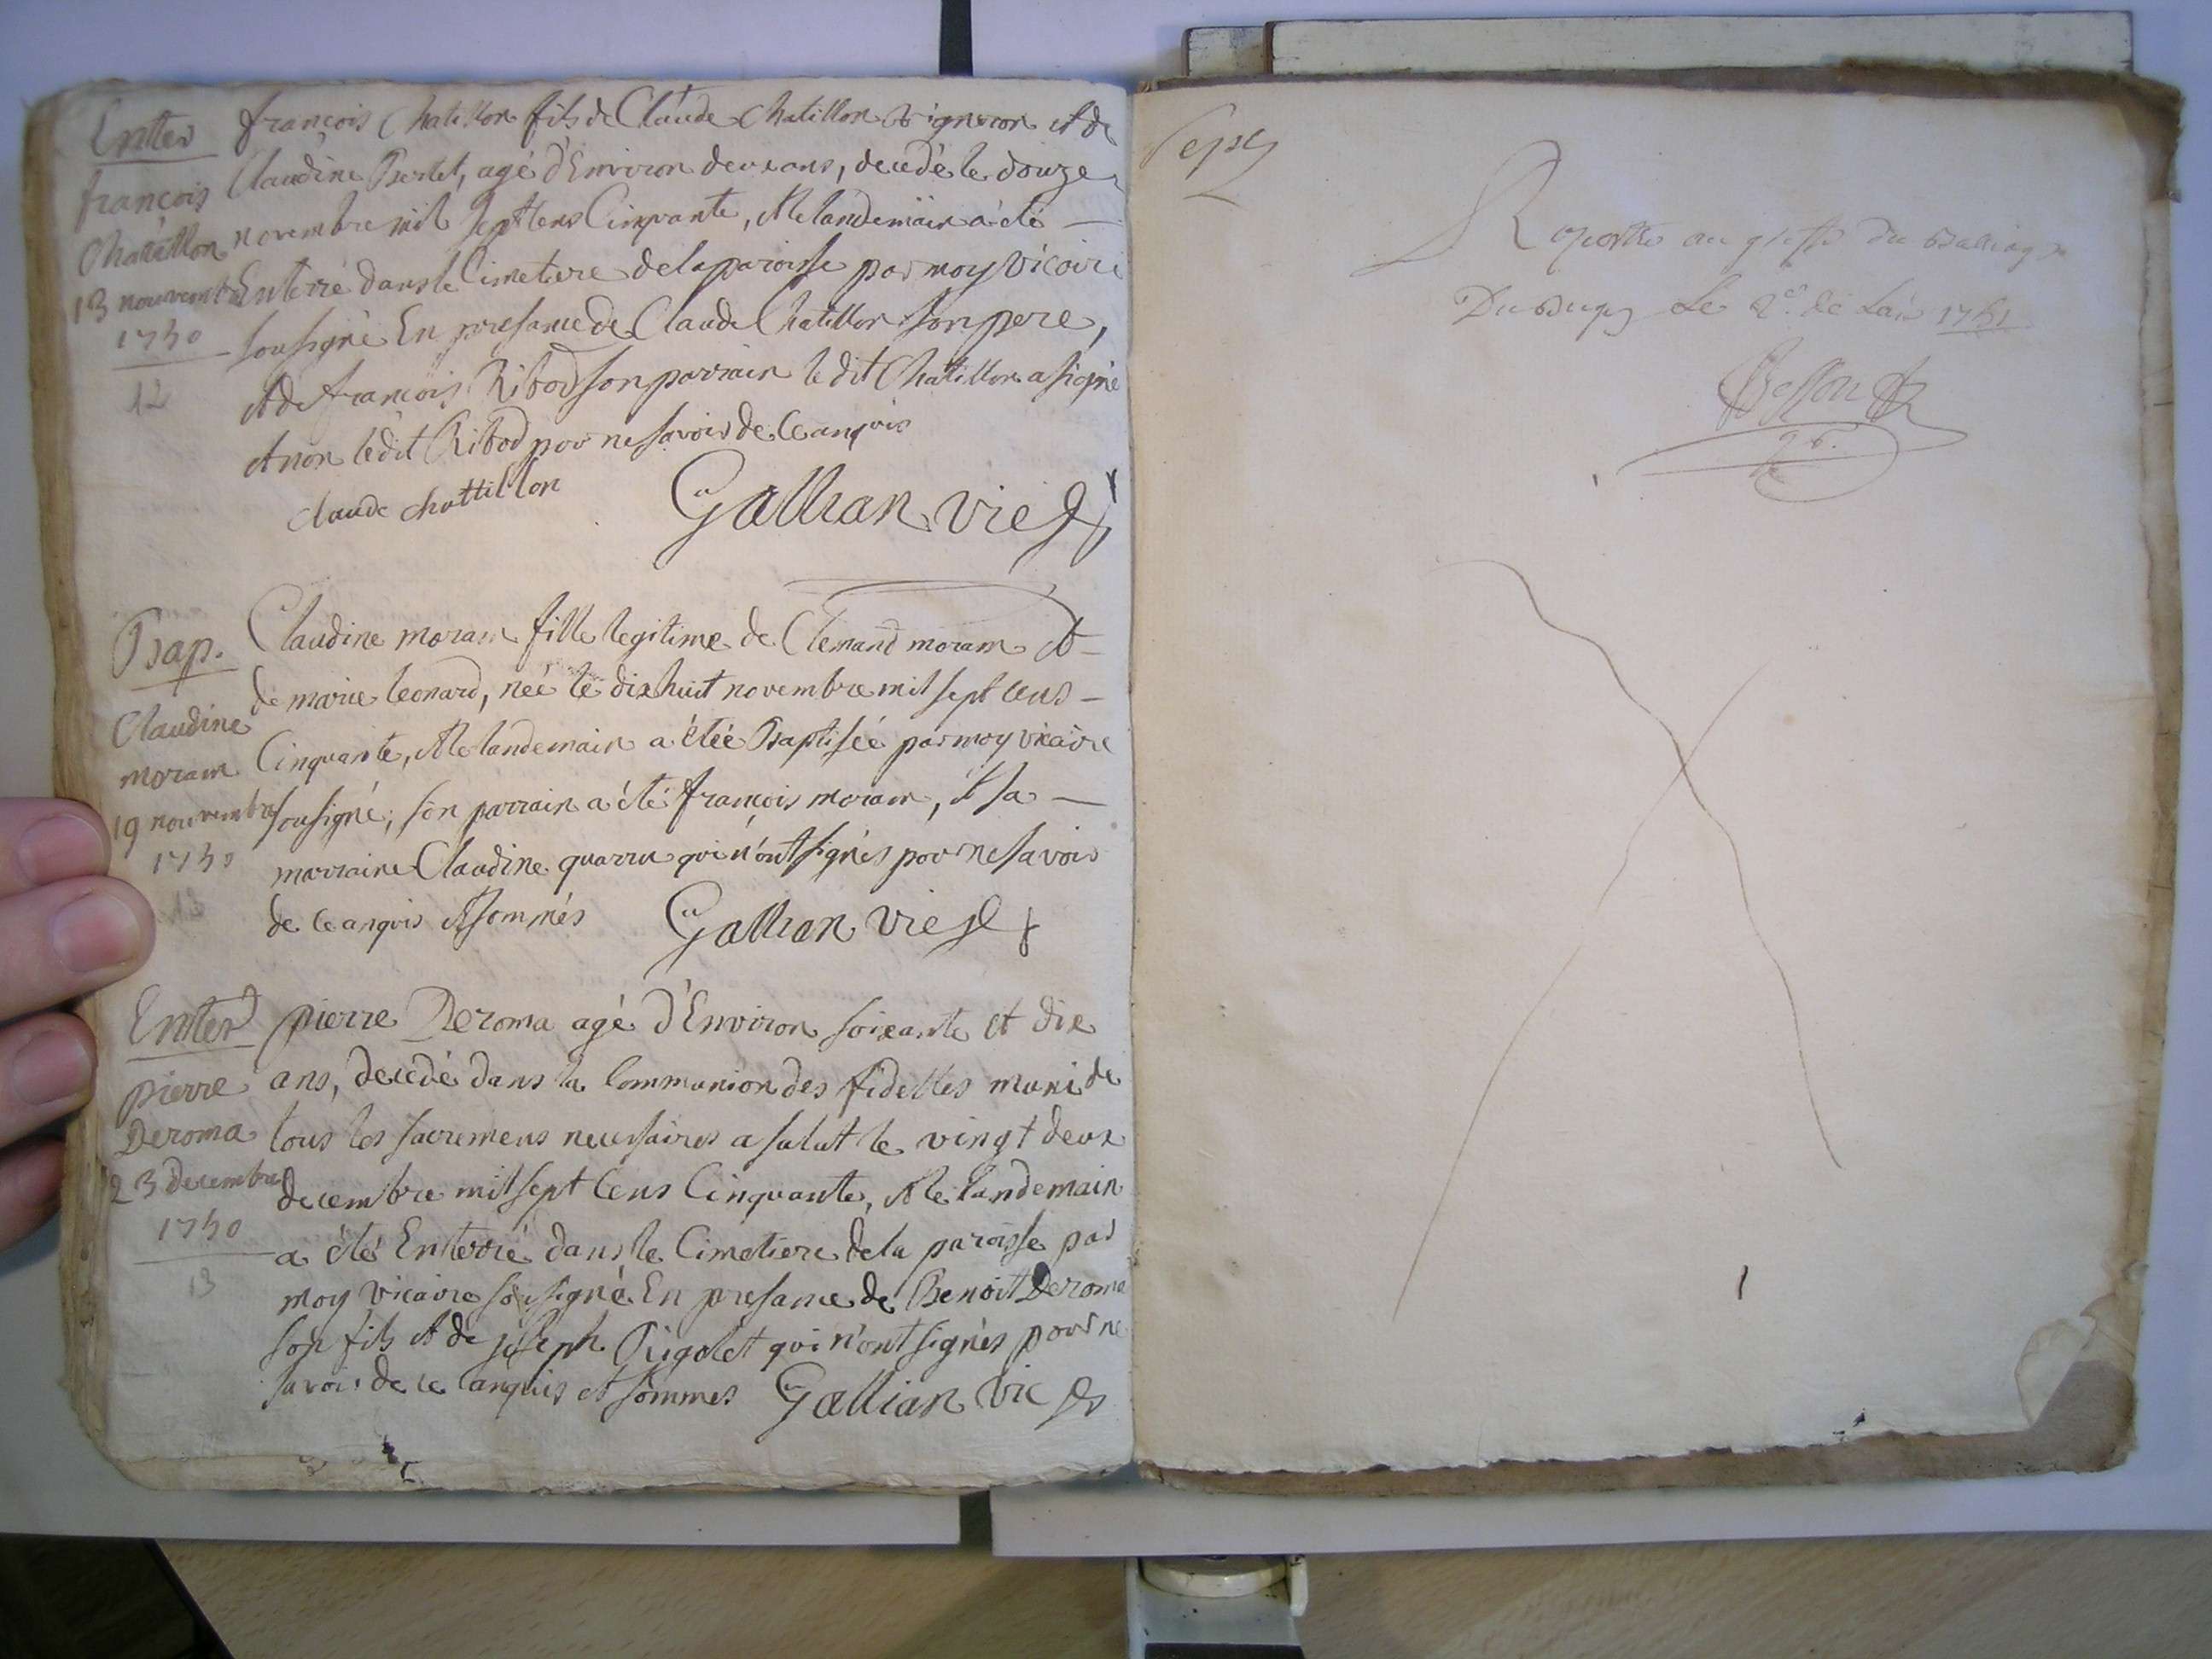 Enter
françois
Chatillon
13 nouvembre
1750
12
françois Chatillon fils de Claude Chatillon vigneron et de
Claudine Berlet, agé d'Environ deux ans, decedé le douze
novembre mil sept cens Cinquante, et le landemain a été
Enterré dans le Cimetiere de la paroisse par moy vicaire
sousigné En presance de Claude Chatillon son pere,
et de françois Ribod son parrain le dit Chatillon a signé
et non le dit Ribod pour ne savoir de ce anquis
claude chattillon
Gallian vic
Bap.
Claudine
moram
19 nouvembre
1750
13
Claudine moram fille legitime de Clemand moram et
de marie leonard, née le dixhuit novembre mil sept cens
Cinquante, et le landemain a étée Baptisée par moy vicaire
sousigné, son parrain a été françois moram, et sa
marraine Claudine quarru qui n'ont signés pour ne savoir
de ce anquis et sommés
Gallian vic
Enter
pierre
Deroma
23 decembre
1750
13
pierre Deroma agé d'Environ soixante et dix
ans, decedé dans la Communion des fidelles muni de
tous les sacremens necessaires a salut le vingt deux
decembre mil sept cens Cinquante, et le landemain
a été Enterré dans le Cimetiere de la paroisse par
moy vicaire sousigné En presance de Benoit Deroma
son fils et de joseph Rigolet qui n'ont signés pour ne
savoir de ce anquis et sommes
Gallian vic
Sept
au greffe du Balliage
Du Bugey Le 1751